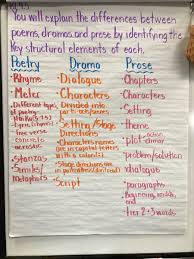 You will explain the differences between
poems, dramas, and prose by identifying the
key structural elements of each.
Poetry
• Rhyme
• Meter
Different types of
poetry
free verse
concrete
acrostic
• Stanzas
• Similes/
Metaphors
Drama
• Dialogue
• Characters
• Divided into
parts-acts/scenes
• Setting/Stage
Directions
• Characters names
are in capital letters
with a colon(:)
• Stage directions are
in parentheses/
• Script
Prose
• Chapters
• Characters
• Setting
• Theme
• plot
• problem/solution
• dialogue
• paragraphs
• Beginning, middle,
and
• tier 2+3 words